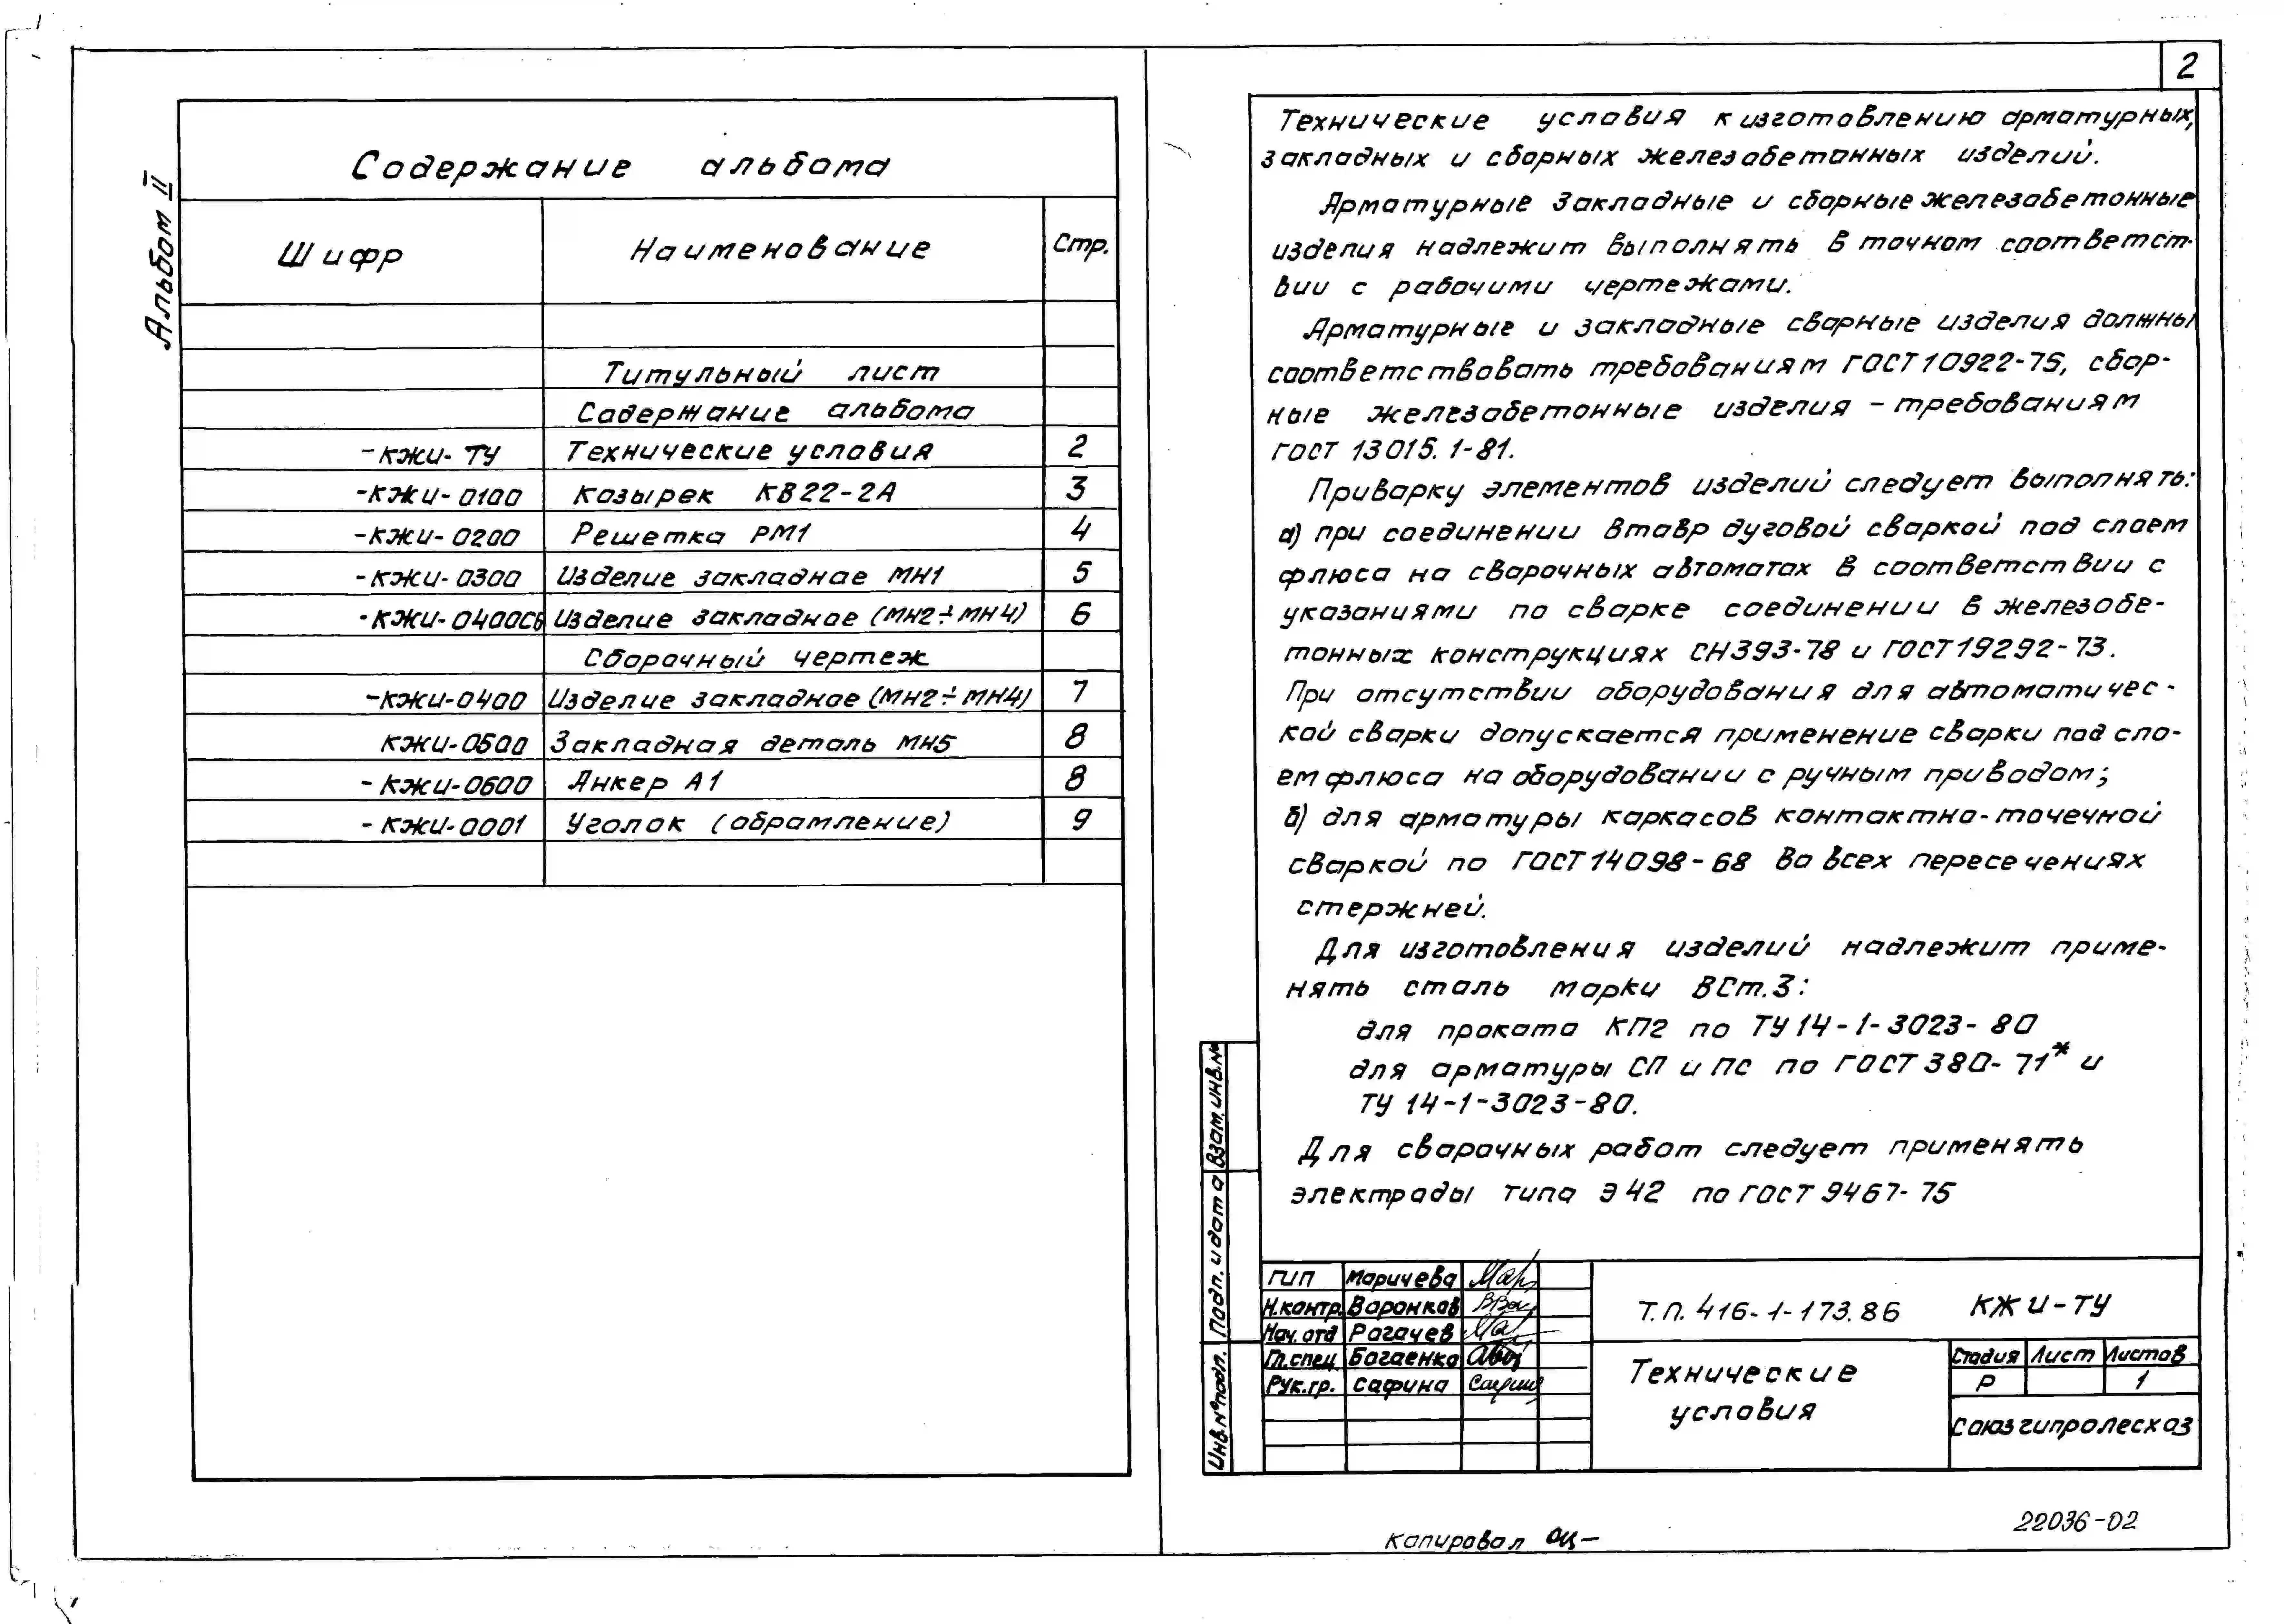 Альбом II
Содержание альбома
Шифр Наименование Стр.
Титульный лист
Содержание альбома
-КЖИ-ТУ Технические условия 2
-КЖИ-0100 Козырек КВ22-2А 3
-КЖИ-0200 Решетка РМ1 4
-КЖИ-0300 Изделие закладное МН1 5
-КЖИ-0400СБ Изделие закладное (МН2÷МН4) 6
Сборочный чертеж
-КЖИ-0400 Изделие закладное (МН2÷МН4) 7
КЖИ-0500 Закладная деталь МН5 8
-КЖИ-0600 Анкер А1 8
-КЖИ-0001 Уголок (обрамление) 9
2
Технические условия к изготовлению арматурных,
закладных и сборных железобетонных изделий.
Арматурные закладные и сборные железобетонные
изделия надлежит выполнять в точном соответст-
вии с рабочими чертежами.
Арматурные и закладные сварные изделия должны
соответствовать требованиям ГОСТ 10922-75, сбор-
ные железобетонные изделия - требованиям
ГОСТ 13015.1-81.
Приварку элементов изделий следует выполнять:
а) при соединении втавр дуговой сваркой под слоем
флюса на сварочных автоматах в соответствии с
указаниями по сварке соединении в железобе-
тонных конструкциях СН393-78 и ГОСТ 19292-73.
При отсутствии оборудования для автоматичес-
кой сварки допускается применение сварки под сло-
ем флюса на оборудовании с ручным приводом;
б) для арматуры каркасов контактно-точечной
сваркой по ГОСТ 14098-68 во всех пересечениях
стержней.
Для изготовления изделий надлежит приме-
нять сталь марки ВСт.3:
для проката КП2 по ТУ 14-1-3023-80
для арматуры СП и ПС по ГОСТ 380-71* и
ТУ 14-1-3023-80.
Для сварочных работ следует применять
электроды типа Э42 по ГОСТ 9467-75
Взам. инв.№
Подп. и дата
Инв.№ подл.
ГИП Маричева
Н.контр. Воронков
Нач. отд Рогачев
Гл.спец Богаенко
Рук.гр. Сафина
Т.П. 416-1-173.86 КЖИ-ТУ
Технические
условия
Стадия Лист Листов
Р 1
Союзгипролесхоз
Копировал
22036-02